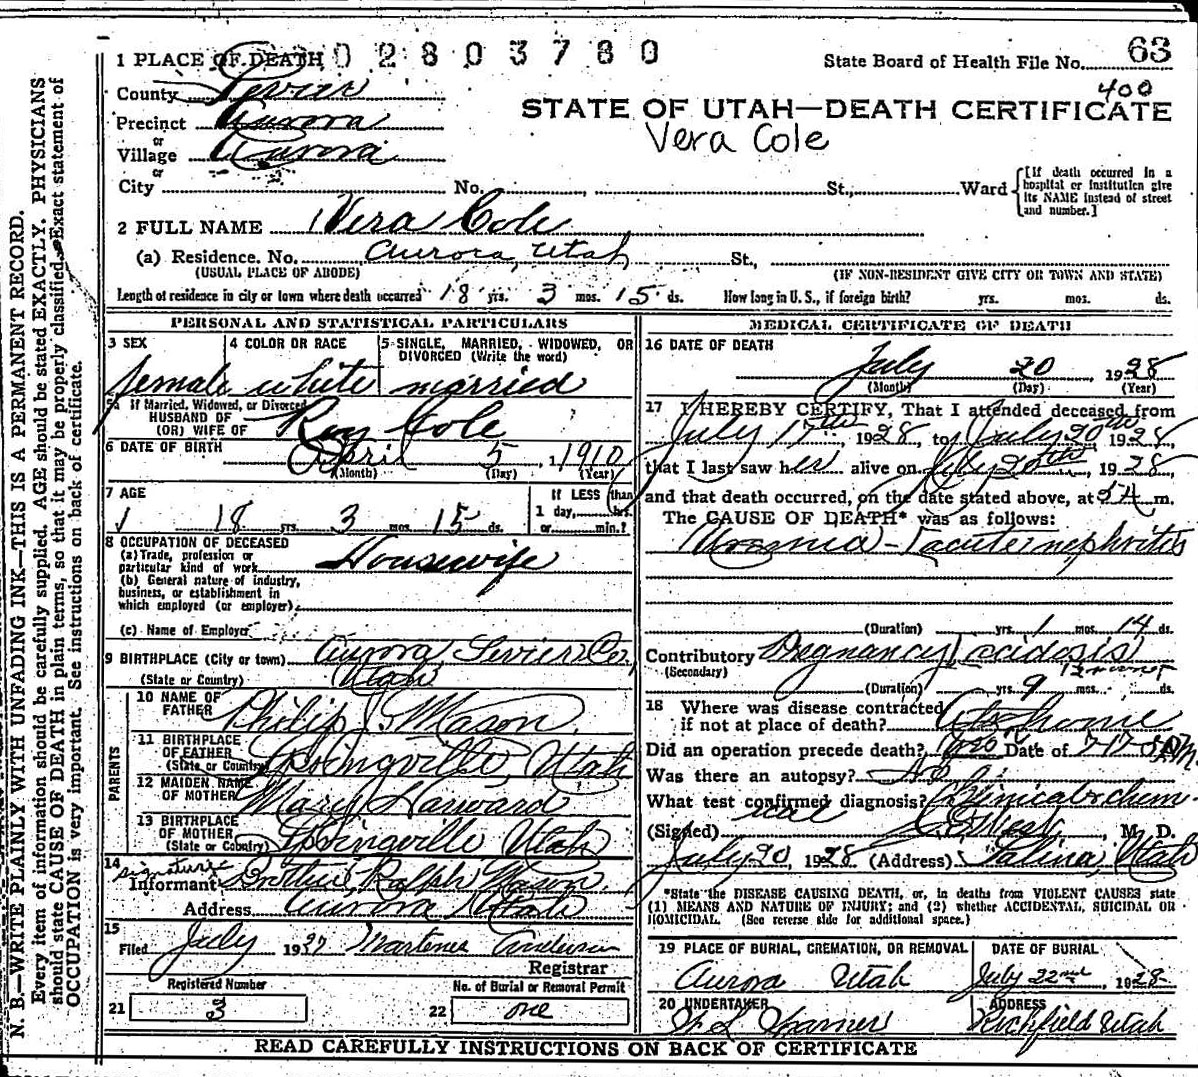 1 PLACE OF DEATH 02803780
State Board of Health File No. 63
400
County Sevier
STATE OF UTAH—DEATH CERTIFICATE
Precinct Aurora
Vera Cole
or
Village Aurora
or
City No. St., Ward
[If death occurred in a hospital or institution give its NAME instead of street and number.]
2 FULL NAME Vera Cole
(a) Residence. No. Aurora, Utah St.,
(USUAL PLACE OF ABODE) (IF NON-RESIDENT GIVE CITY OR TOWN AND STATE)
Length of residence in city or town where death occurred 18 yrs. 3 mos. 15 ds. How long in U. S., if foreign birth? yrs. mos. ds.
PERSONAL AND STATISTICAL PARTICULARS
3 SEX 4 COLOR OR RACE 5 SINGLE, MARRIED, WIDOWED, OR DIVORCED (Write the word)
female white married
5a If Married, Widowed, or Divorced
HUSBAND OF
(OR) WIFE OF Roy Cole
6 DATE OF BIRTH April 5, 1910
(Month) (Day) (Year)
7 AGE If LESS than
1 day, hrs.
18 yrs. 3 mos. 15 ds. or min.?
8 OCCUPATION OF DECEASED
(a) Trade, profession or
particular kind of work Housewife
(b) General nature of industry,
business, or establishment in
which employed (or employer)
(c) Name of Employer
9 BIRTHPLACE (City or town) Aurora Sevier Co,
(State or Country) Utah
PARENTS
10 NAME OF
FATHER Philip Mason
11 BIRTHPLACE
OF FATHER
(State or Country) Springville, Utah
12 MAIDEN NAME
OF MOTHER Mary Harward
13 BIRTHPLACE
OF MOTHER
(State or Country) Springville Utah
14 signature
Informant Brother Ralph Mason
Address Aurora Utah
15
Filed July 19 Anderson
Registrar
Registered Number No. of Burial or Removal Permit
21 3 22 one
MEDICAL CERTIFICATE OF DEATH
16 DATE OF DEATH
July 20, 1928
(Month) (Day) (Year)
17 I HEREBY CERTIFY, That I attended deceased from
July 17th, 1928, to July 20th 1928,
that I last saw her alive on July 20th, 1928
and that death occurred, on the date stated above, at m.
The CAUSE OF DEATH* was as follows:
Uraemia - acute nephrites
(Duration) yrs. 1 mos. 14 ds.
Contributory Pregnancy acidosis
(Secondary)
(Duration) yrs. 9 mos. ds.
18 Where was disease contracted
if not at place of death? At home
Did an operation precede death? Date of
Was there an autopsy? No
What test confirmed diagnosis? Clinical & chem-
ical
(Signed) West, M. D.
July 20, 1928 (Address) Salina, Utah
*State the DISEASE CAUSING DEATH, or, in deaths from VIOLENT CAUSES state
(1) MEANS AND NATURE OF INJURY; and (2) whether ACCIDENTAL, SUICIDAL OR
HOMICIDAL. (See reverse side for additional space.)
19 PLACE OF BURIAL, CREMATION, OR REMOVAL DATE OF BURIAL
Aurora Utah July 22nd, 1928
20 UNDERTAKER ADDRESS
Richfield Utah
READ CAREFULLY INSTRUCTIONS ON BACK OF CERTIFICATE
N. B.—WRITE PLAINLY WITH UNFADING INK—THIS IS A PERMANENT RECORD.
Every item of information should be carefully supplied. AGE should be stated EXACTLY. PHYSICIANS
should state CAUSE OF DEATH in plain terms, so that it may be properly classified. Exact statement of
OCCUPATION is very important. See instructions on back of certificate.